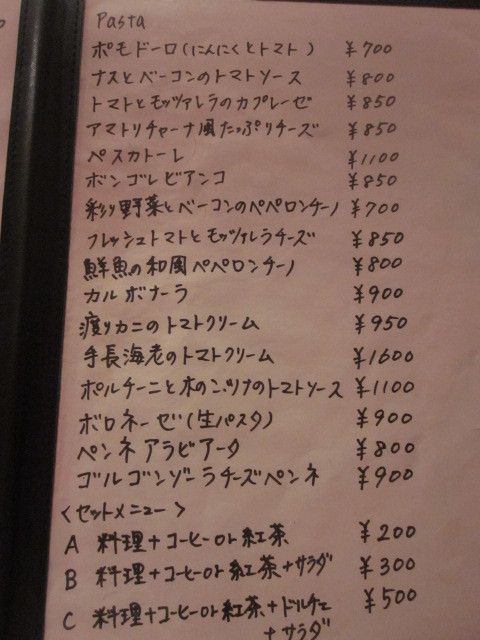 Pasta
ポモドーロ(にんにくとトマト) ¥700
ナスとベーコンのトマトソース ¥800
トマトとモッツァレラのカプレーゼ ¥850
アマトリチャーナ風たっぷりチーズ ¥850
ペスカトーレ ¥1100
ボンゴレビアンコ ¥850
彩り野菜とベーコンのペペロンチーノ ¥700
フレッシュトマトとモッツァレラチーズ ¥850
鮮魚の和風ペペロンチーノ ¥800
カルボナーラ ¥900
渡りカニのトマトクリーム ¥950
手長海老のトマトクリーム ¥1600
ポルチーニと木のコツナのトマトソース ¥1100
ボロネーゼ(生パスタ) ¥900
ペンネアラビアータ ¥800
ゴルゴンゾーラチーズペンネ ¥900
<セットメニュー>
A 料理+コーヒーor紅茶 ¥200
B 料理+コーヒーor紅茶+サラダ ¥300
C 料理+コーヒーor紅茶+ドルチェ ¥500
+サラダ